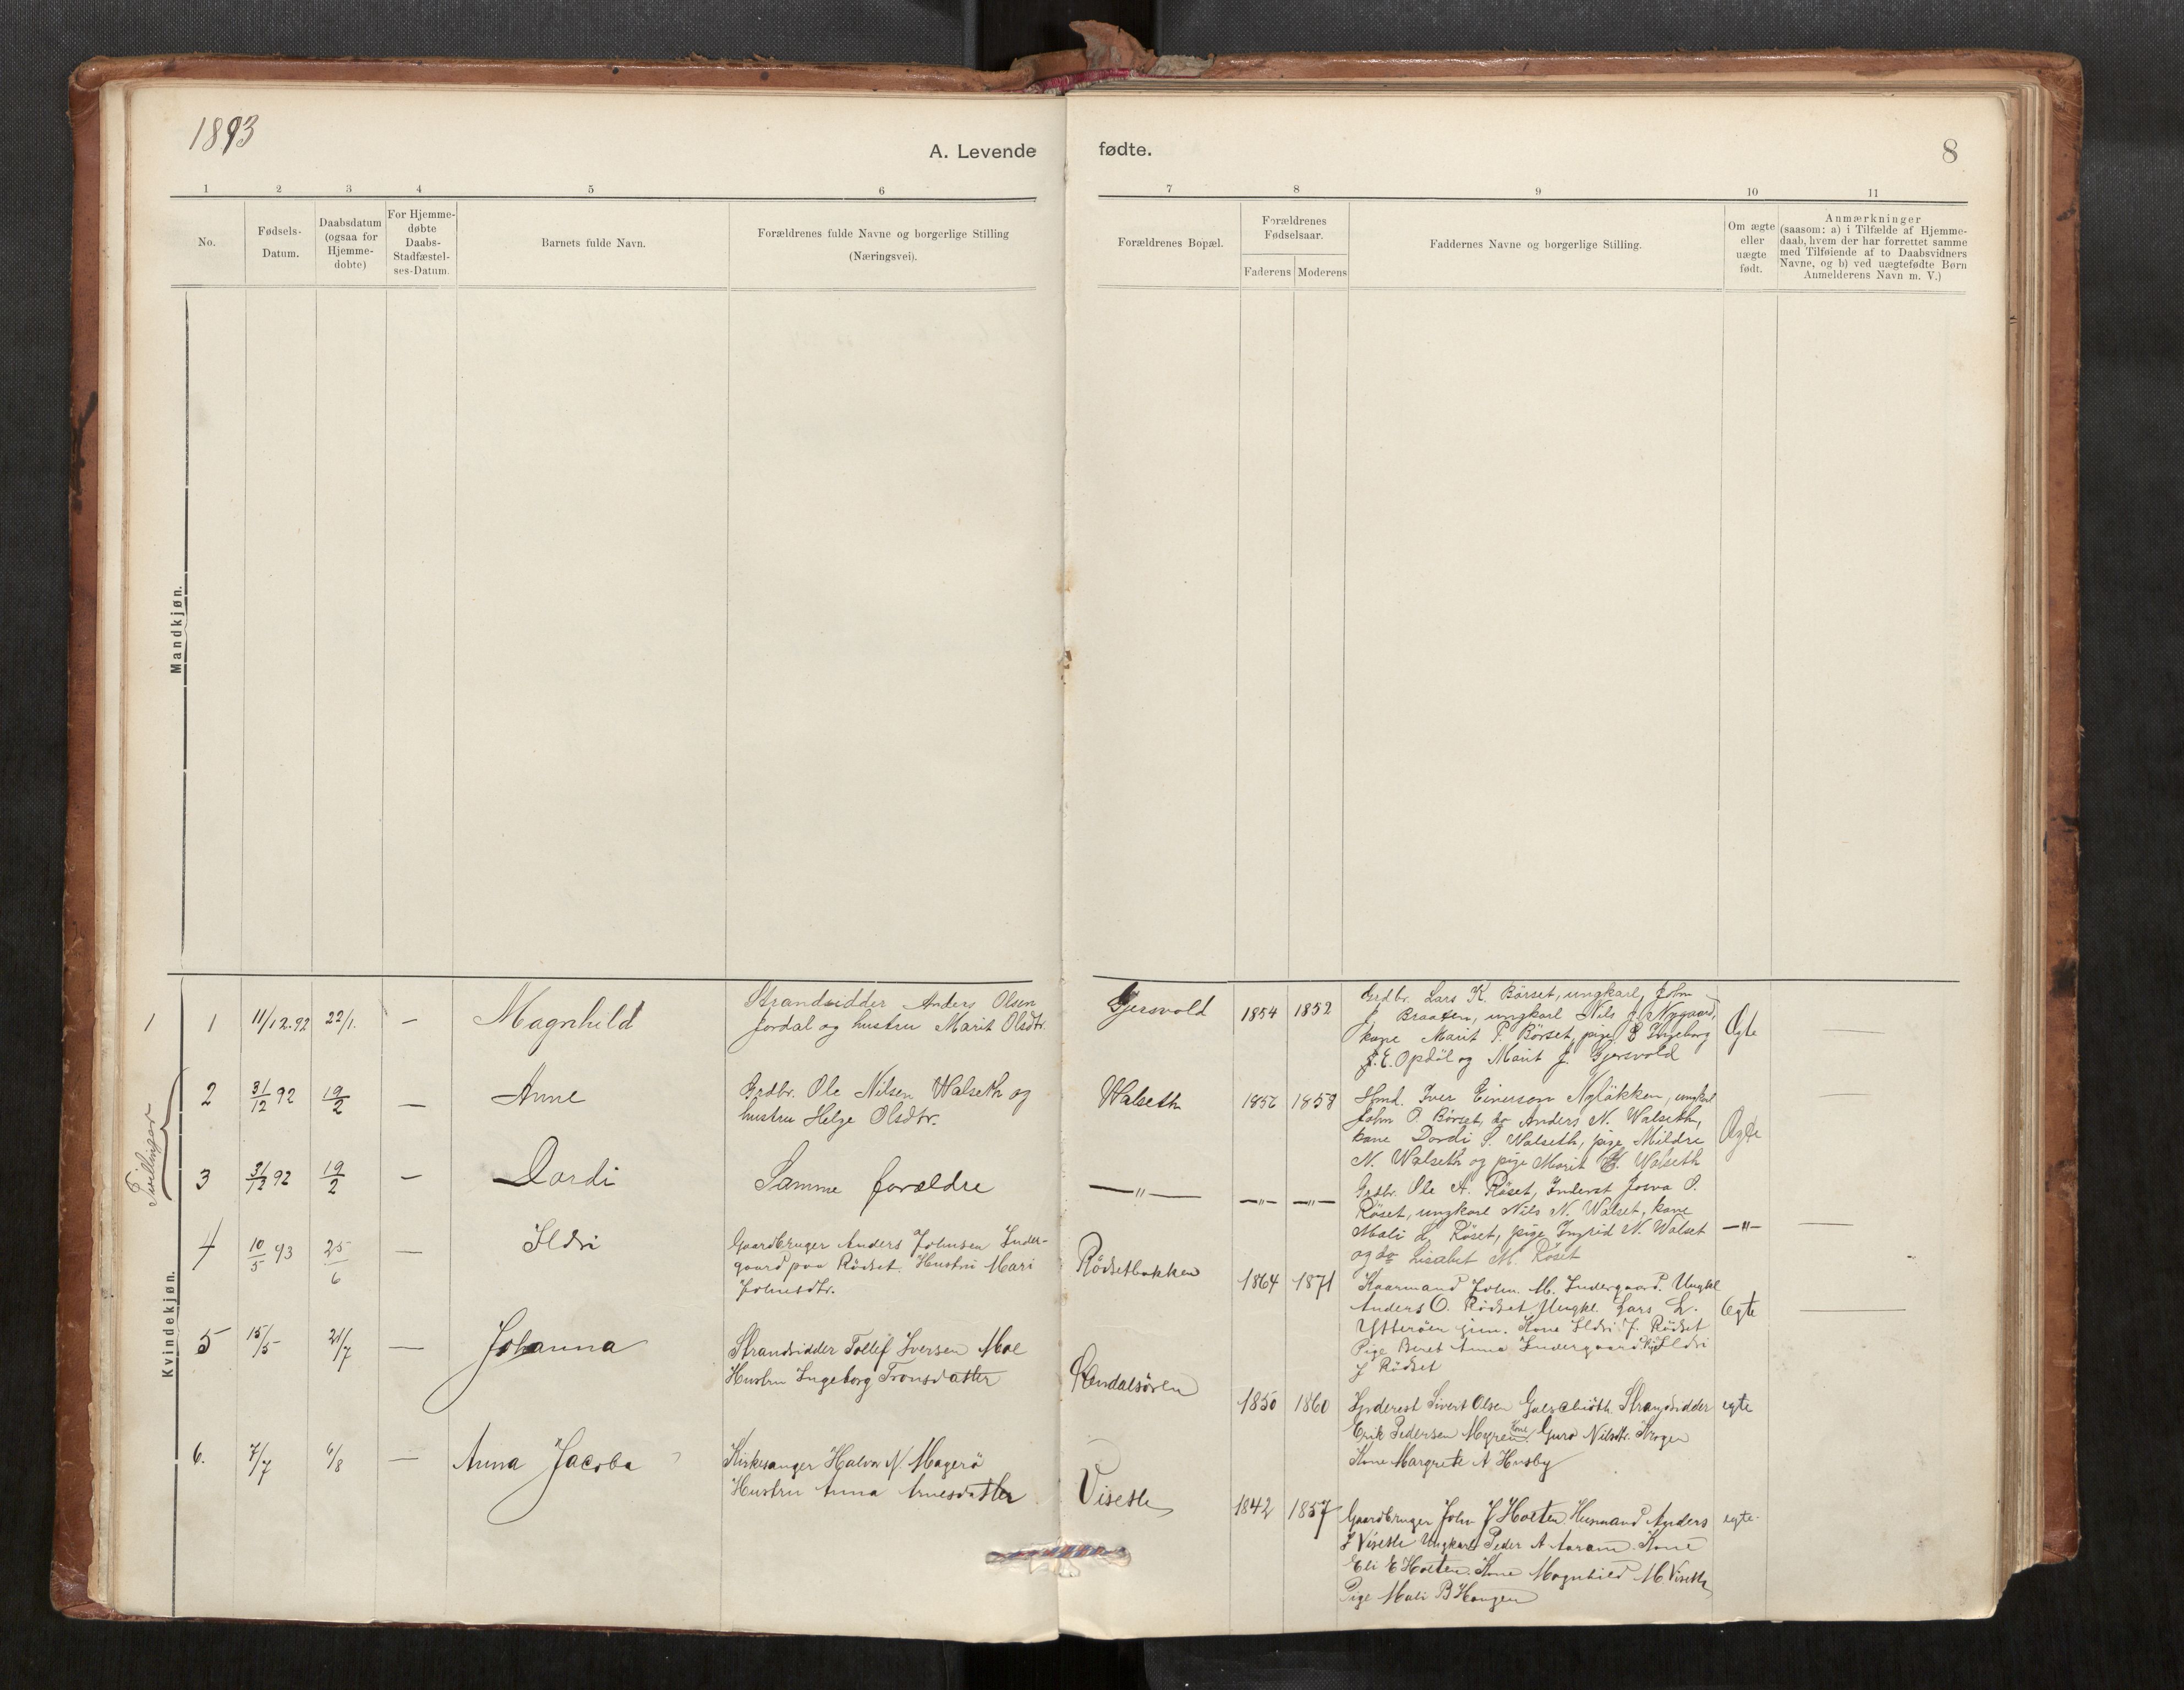 1893
A. Levende fødte.
8
1 2 3 4 5 6 7 8 9 10 11
No.
Fødsels-
Datum.
Daabsdatum
(ogsaa for
Hjemme-
døbte)
For Hjemme-
døbte
Daabs-
Stadfæstel-
ses-Datum.
Barnets fulde Navn.
Forældrenes fulde Navne og borgerlige Stilling
(Næringsvei).
Forældrenes Bopæl.
Forældrenes
Fødselsaar.
Faderens Moderens
Faddernes Navne og borgerlige Stilling.
Om ægte
eller
uægte
født.
Anmærkninger
(saasom: a) i Tilfælde af Hjemme-
daab, hvem der har forrettet samme
med Tilføiende af to Daabsvidners
Navne, og b) ved uægtefødte Børn
Anmelderens Navn m. V.)
Mandkjøn.
Kvindekjøn.
1
1 11/12.92 22/1. — Magnhild
Strandsidder Anders Olsen
Jordal og hustru Marit Olsdtr.
Gjersvold
1854 1852
Grdbr. Lars K. Børset, ungkarl John
J. Braaten, ungkarl Nils J. Nygaard,
kone Marit P. Børset, pige Ingeborg
E. Opdøl og Marit J. Gjersvold
Ægte
Tvillinger
2 31/12 92 19/2 — Anne
Grdbr. Ole Nilsen Walseth og
hustru Helge Olsdtr.
Walseth
1856 1858
Hsmd. Iver Einerson Nyløkken, ungkarl
John O. Børset, do Anders N. Walseth,
kone Dordi S. Walseth, pige Mildre
N. Walseth og pige Marit Walseth
Ægte
3 31/12 92 19/2 — Dordi
Samme forældre
—"—
—"— —"—
Grdbr. Ole A. Røset, Inderst Josva O.
Røset, ungkarl Nils N. Walset, kone
Mali L. Røset, pige Ingrid N. Walset
og do Lisabet M. Røset
—"—
4 10/5 93 25/6 — Ildri
Gaardbruger Anders Johnsen Inder-
gaard paa Rødset. Hustru Mari
Johnesdtr.
Rødsetbakken
1864 1871
Kaarmand John M. Indergaard. Ungkl
Anders O. Rødset Ungkl. Lars L.
Ytterøen jun. Kone Ildri J. Rødset
Pige Beret Anna Indergaard Pig Ildri
J Rødset
Egte
5 15/5 21/7 — Johanna
Strandsidder Tollef Iversen Moe
Hustru Ingeborg Tronsdatter
1850 1860
Inderest Sivert Olsen Strandsidder
Erik Pedersen Myren. Kone Guro Nilsdtr. Krogen
Kone Margrete A Husby
egte
6. 7/7 6/8 — Anna Jacoba
Kirkesanger Halvor N Magerø
Hustru Anna Arnesdatter
Viseth
1842 1857
Gaardbruger John J Holten Husmand Anders
J Viseth Ungkarl Peder A Aaram. Kone
Eli E Holten. Kone Magnhild M. Viseth
Pige Mali B Haugen
egte.